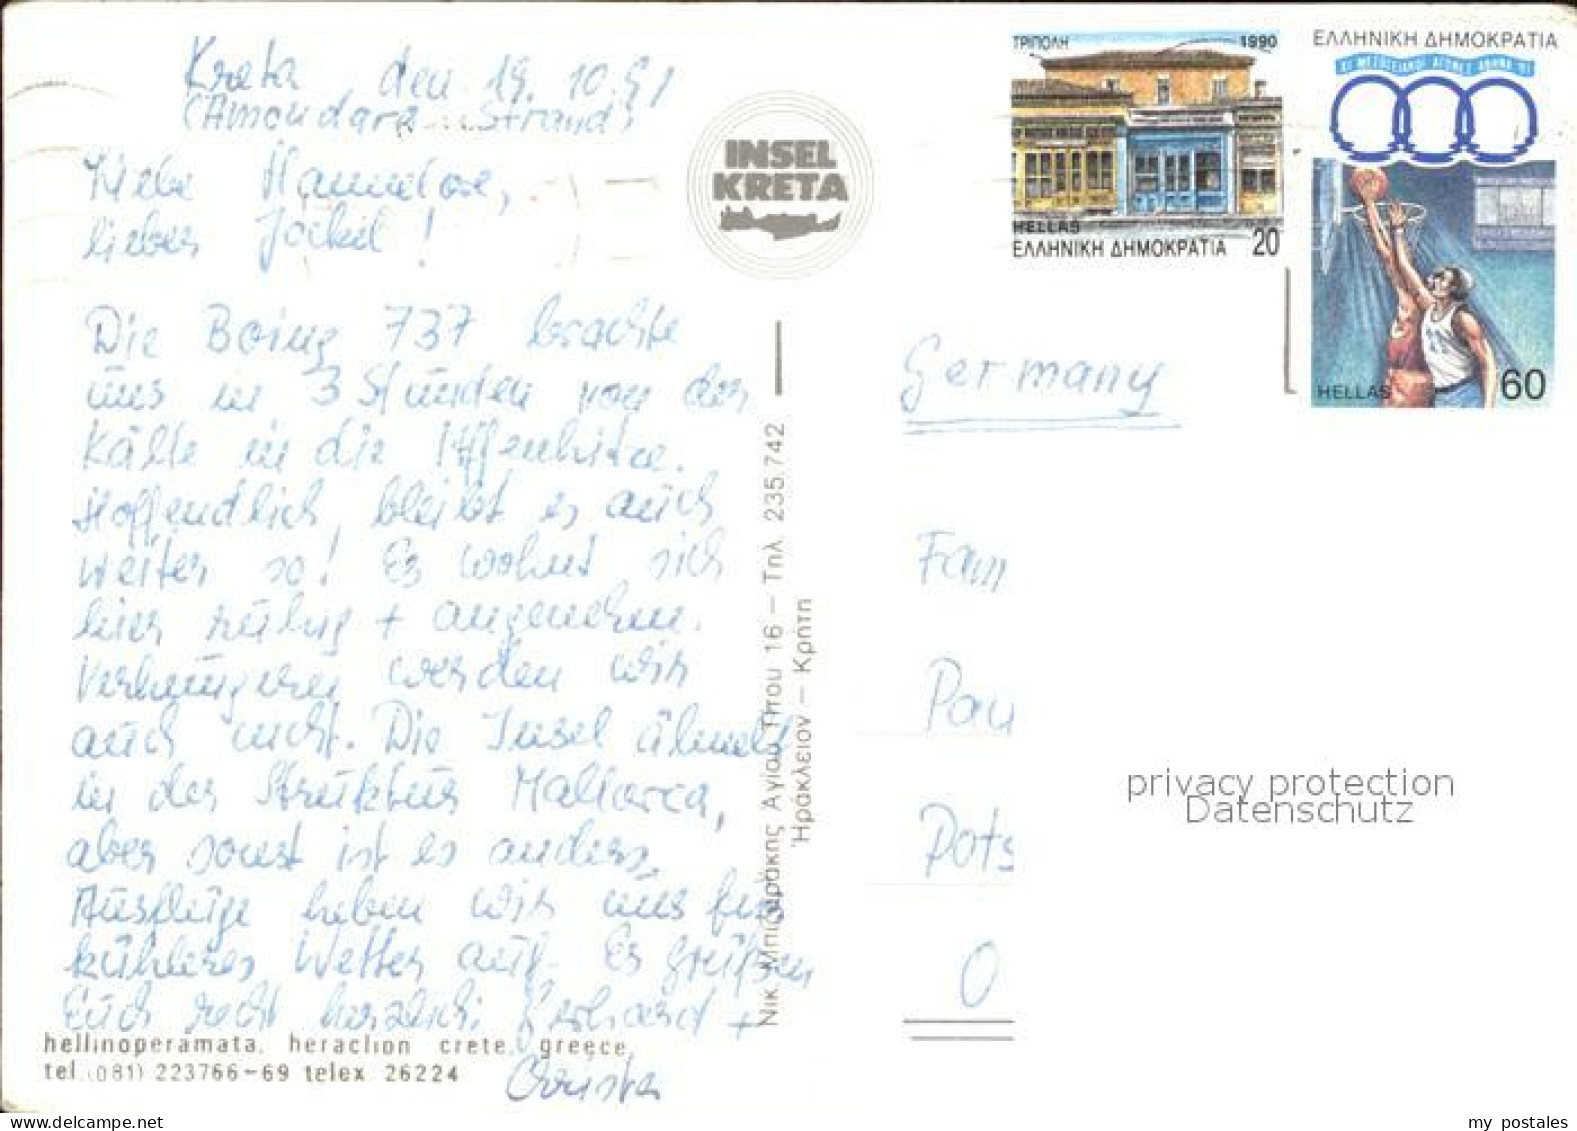 Kreta den 19.10.91
(Amoudara Strand)
Liebe Hannelore,
lieber Jockel!
Die Boing 737 brachte
uns in 3 Stunden von der
Kälte in die Affenhitze.
Hoffendlich bleibt es auch
weiter so! Es wohnt sich
hier ruhig + angenehm.
Verhungern werden wir
auch nicht. Die Insel ähnelt
in der Struktur Mallorca,
aber sonst ist es anders.
Ausflüge heben wir uns für
kühleres Wetter auf. Es grüßen
Euch recht herzlich Gerhard +
Christa
hellinoperamata. heraclion crete. greece.
tel.(081) 223766-69 telex 26224
INSEL
KRETA
Νικ. Μπιζιράκης Αγίου Τίτου 16 – Τηλ 235.742
Ἡράκλειον – Κρήτη
ΤΡΙΠΟΛΗ 1990
HELLAS
ΕΛΛΗΝΙΚΗ ΔΗΜΟΚΡΑΤΙΑ 20
ΕΛΛΗΝΙΚΗ ΔΗΜΟΚΡΑΤΙΑ
ΜΕΣΟΓΕΙΑΚΟΙ ΑΓΩΝΕΣ ΑΘΗΝΑ '91
HELLAS 60
Germany
Fam
Pau
Pots
O
privacy protection
Datenschutz
www.delcampe.net
my_postales